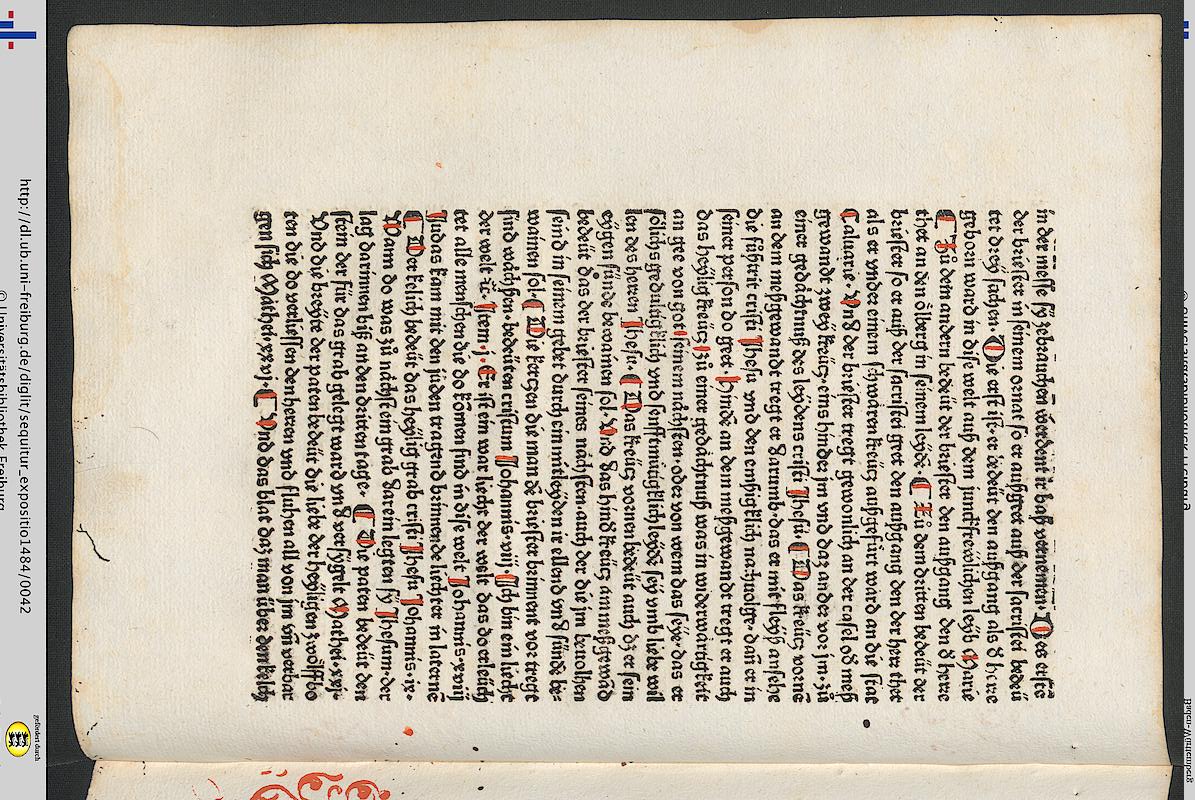 in der messe sÿ gebrauchen werdent ir baß vernemen. Des erste
der briester in seinem ornat so er außgeet auß der sacristei bedeü
tet dreÿ sachen. Die erst ist. er bedeüt den außgang als d̕ herre
geborn ward in dise welt auß dem junckfrewlichen leÿb Marie
¶ Zů dem andern bedeüt der briester den außgang den d̕ herre
thet an den ölberg in seinem leÿdē. ¶ Zů dem dritten bedeüt der
briester so er auß der sacristei geet den außgang den der herr thet
als er vnder einem schwären kreücz außgefürt ward an die stat
Caluarie. Vnd der briester tregt gewonlich an der casel od̕ meß
gewandt zweÿ kreücz. eins hinder jm vnd daz ander vor jm. zů
einer gedächtnuß des leÿdens cristi Jhesu. ¶ Das kreücz vornē
an dem meßgewandt tregt er darumb. das er mit fleÿß ansehe
die fůßtrit cristi Jhesu vnd den emßigklich nachuolge. dañ er in
seiner person do geet. Hinde an dem meßgewandt tregt er auch
das heÿlig kreücz zů einer gedächtnuß was in widerwärtigkeit
an gee von got seinem nächsten. oder von wem das seÿe. das er
sölichs gedultigklich vnd senfftmütigklich leÿde seÿ vmb liebe wil
len des herren Jhesu. ¶ Das kreücz vornen bedeüt auch dz er sein
eÿgen sünde bewainen sol. Vnd das hind̕ kreücz am meßgewād
bedeüt das der briester seines nächsten. auch der die jm beuolhen
seind in seinem gebet durch ein mitleÿden ir ellend vnd sünde be-
wainen sol. ¶ Die kerczen die man dē briester brinnent vor tregt
sind wächßen. bedeüten cristum Johannis. viij. Ich bin ein liecht
der welt ꝛc̄. Item. j. Er ist ein war liecht der welt das do erleüch
tet alle menschen die do komen sind in dise welt Johannis. xviij
Judas kam mit den juden tragend brinnende liechter in laterne
¶ Der kelich bedeüt das heÿlig grab cristi Jhesu Johannis. ix.
Wann do was zů nächst ein grab darein legten sÿ Jhesum. der
lag darinnen biß an den dritten tage. ¶ Die paten bedeüt den
stein der für das grab gelegt ward vnd versÿgelt Mathei. xxvj.
Vnd die breÿte der paten bedeüt die liebe der heÿligen zwölffbo
ten die do verliessen den herren vnd fluhen all von jm vn̄ verbar
gen sich Mathei. xxvj. ¶ Vnd das blat daz man über den kelch
http://dl.ub.uni-freiburg.de/diglit/sequitur_expositio1484/0042
© Universitätsbibliothek Freiburg
gefördert durch